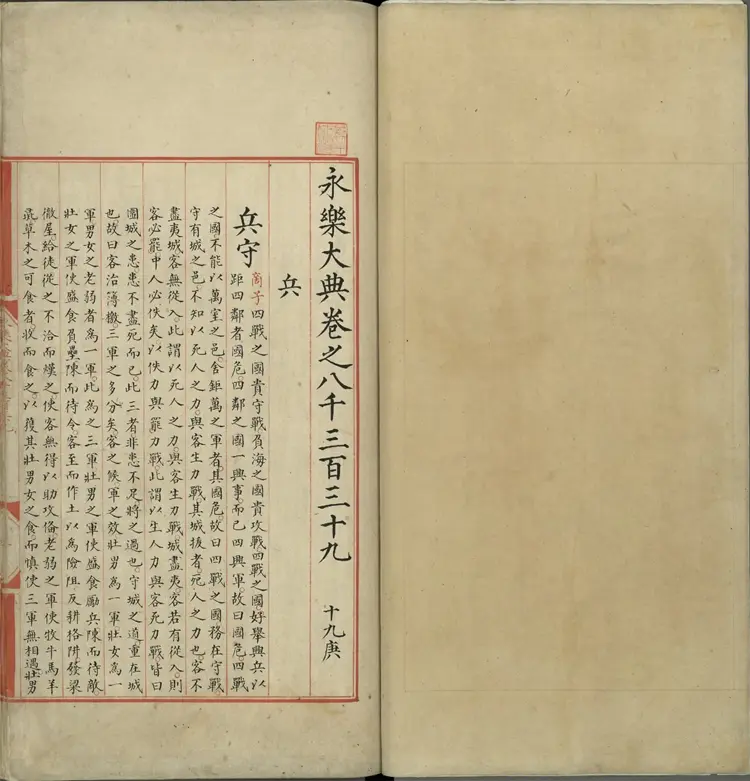 永樂大典卷之八千三百三十九 十九庚
兵
兵守 商子四戰之國貴守戰負海之國貴攻戰四戰之國好舉興兵以
距四鄰者國危四鄰之國一興事而已四興軍故曰國危四戰
之國不能以萬室之邑舍鉅萬之軍者其國危故曰四戰之國務在守戰
守有城之邑不知以死人之力與客生力戰其城拔者死人之力也客不
盡夷城客無從入此謂以死人之力與客生力戰城盡夷客若有從入則
客必罷中人必佚矣以佚力與罷力戰此謂以生人力與客死力戰皆曰
圍城之患患不盡死而已此三者非患不足將之過也守城之道重在城
也故曰客治簿檄三軍之多分矣客之候軍之效壯男為一軍壯女為一
軍男女之老弱者為一軍此為之三軍壯男之軍使盛食勵兵陳而待敵
壯女之軍使盛食負壘陳而待令客至而作土以為險阻反耕格阱發梁
徹屋給徒從之不洽而熯之使客無得以助攻備老弱之軍使牧牛馬羊
彘草木之可食者收而食之以獲其壯男女之食而慎使三軍無相過壯男